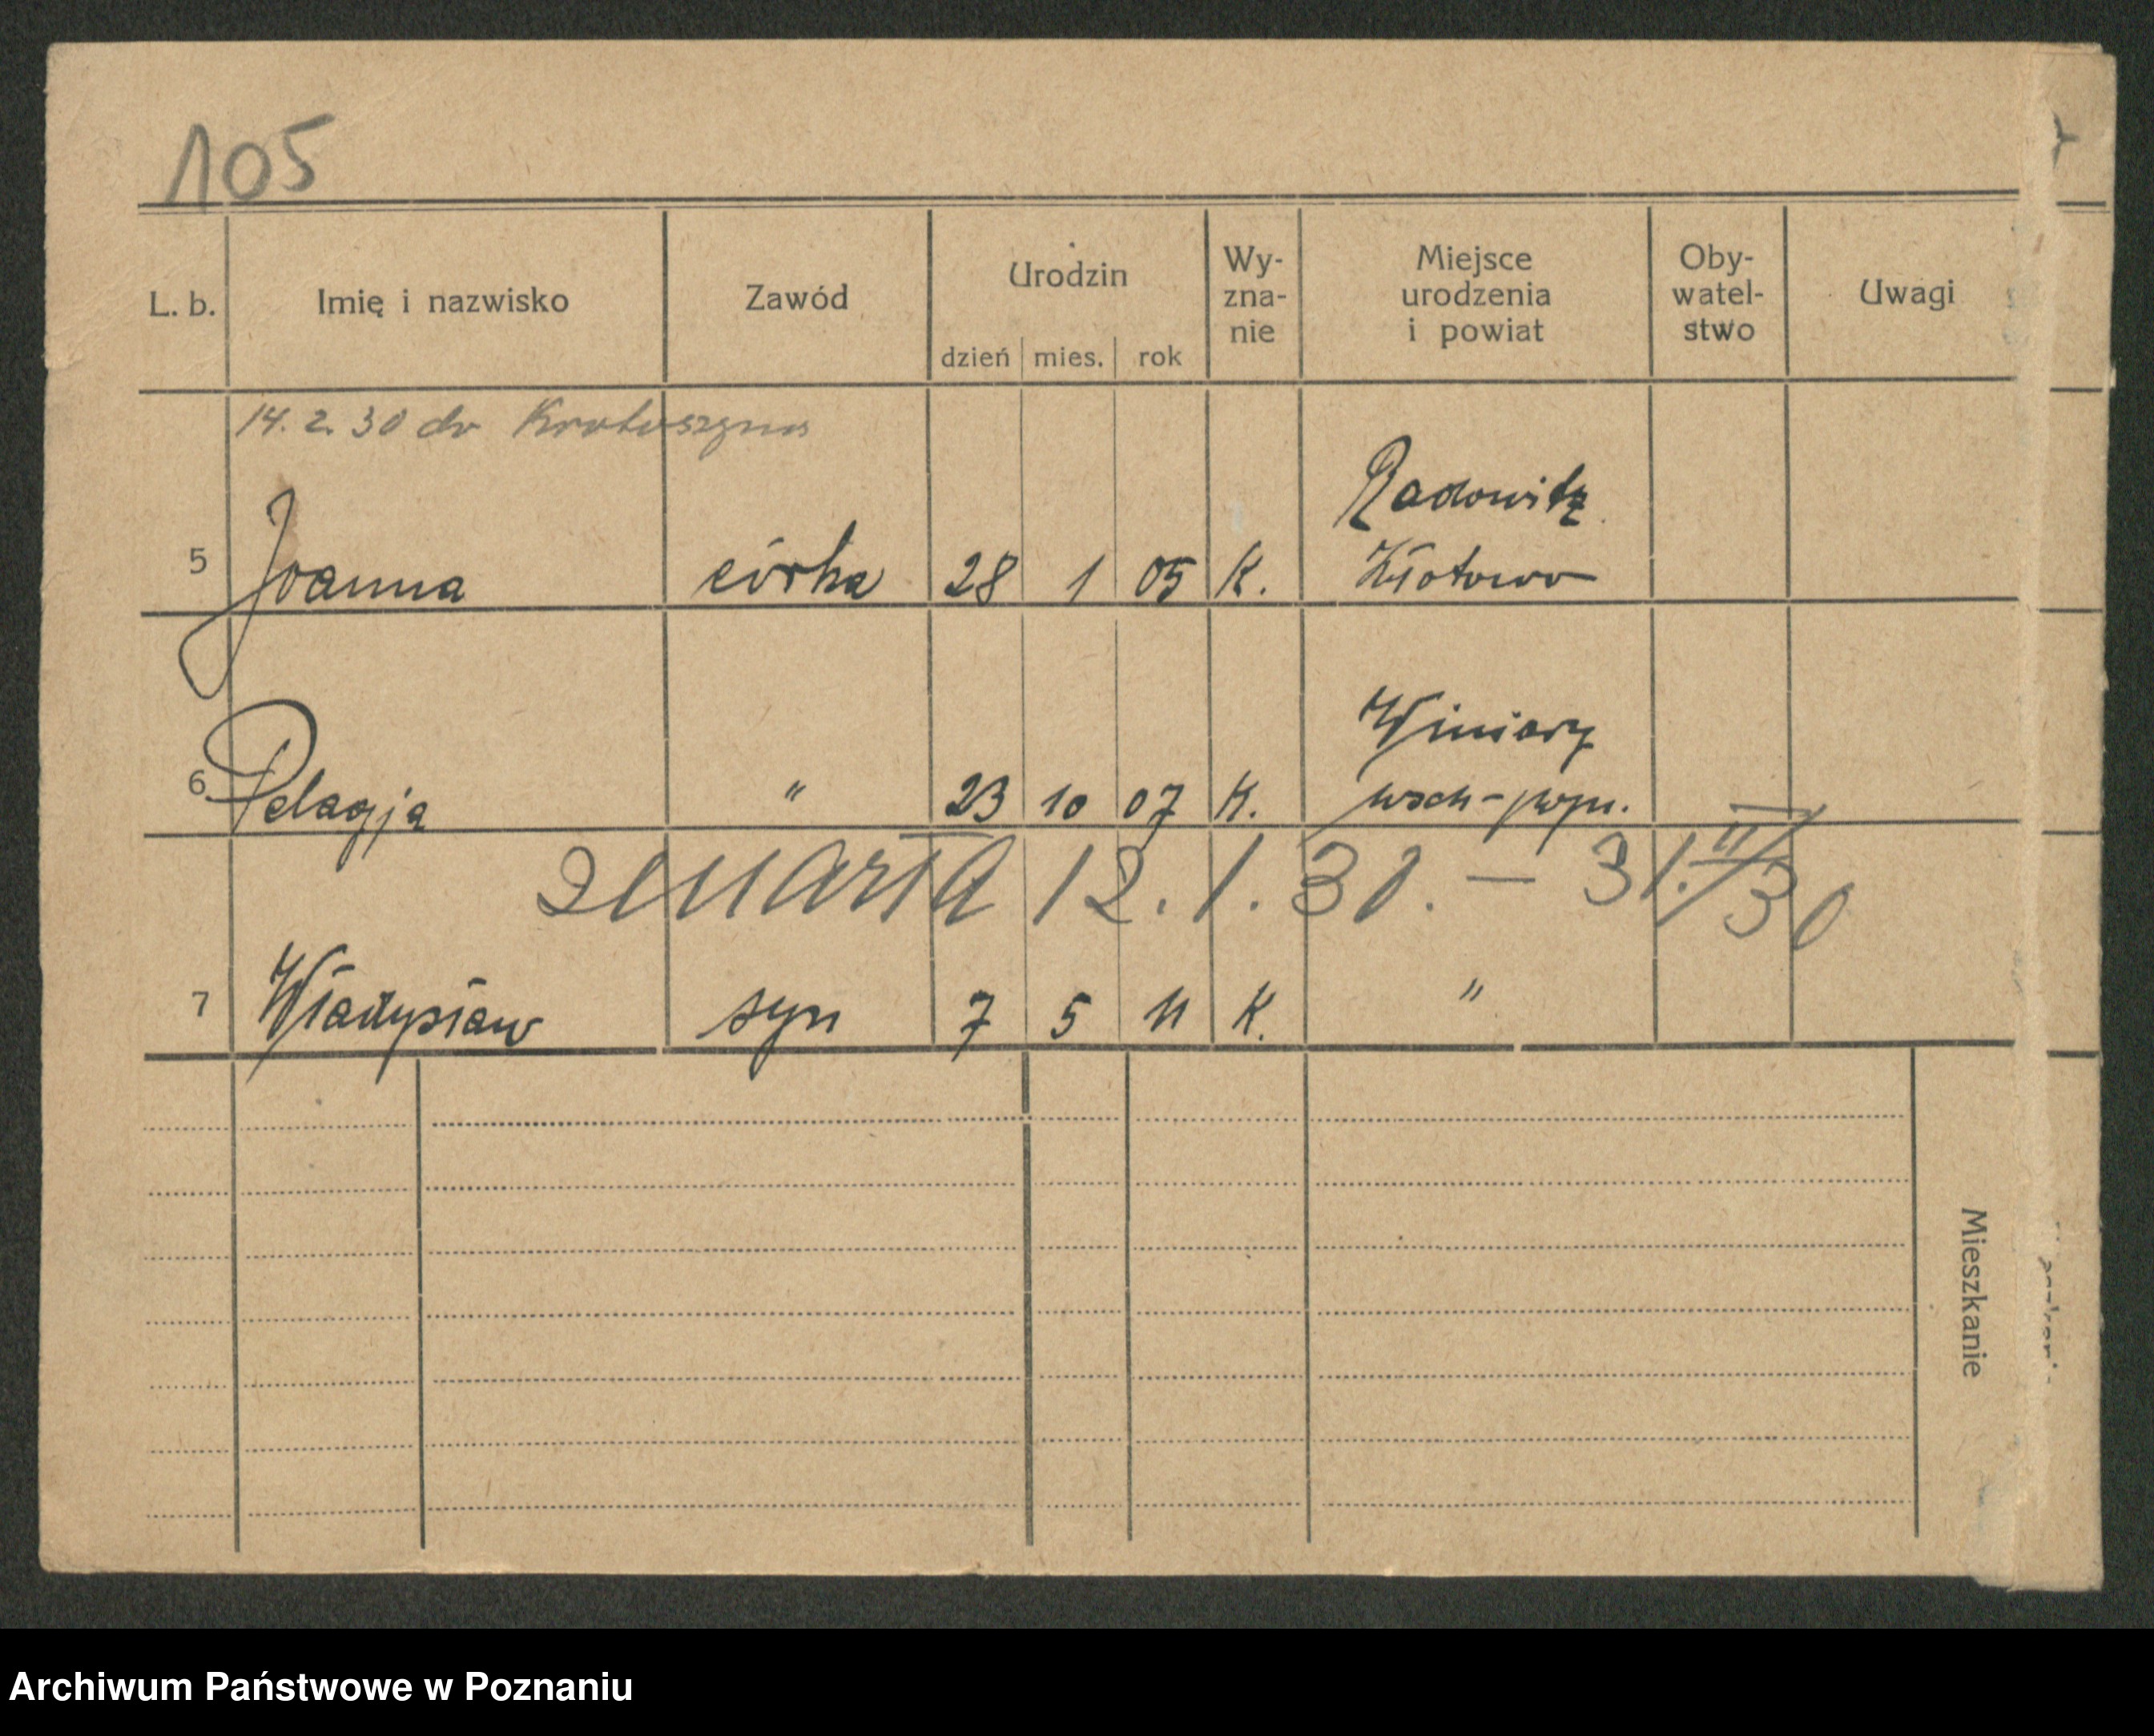 105
L. b. Imię i nazwisko Zawód Urodzin dzień mies. rok Wy-zna-nie Miejsce urodzenia i powiat Oby-watel-stwo Uwagi
14. 2. 30 do Krotoszyna
Radowitz
5 Joanna córka 28 1 05 K. Złotowo
Winiary
6 Pelagja " 23 10 07 K. wsch-pozn.
zmarła 12. 1. 30. — 31. II/30
7 Władysław syn 7 5 11 K. "
Mieszkanie
Archiwum Państwowe w Poznaniu